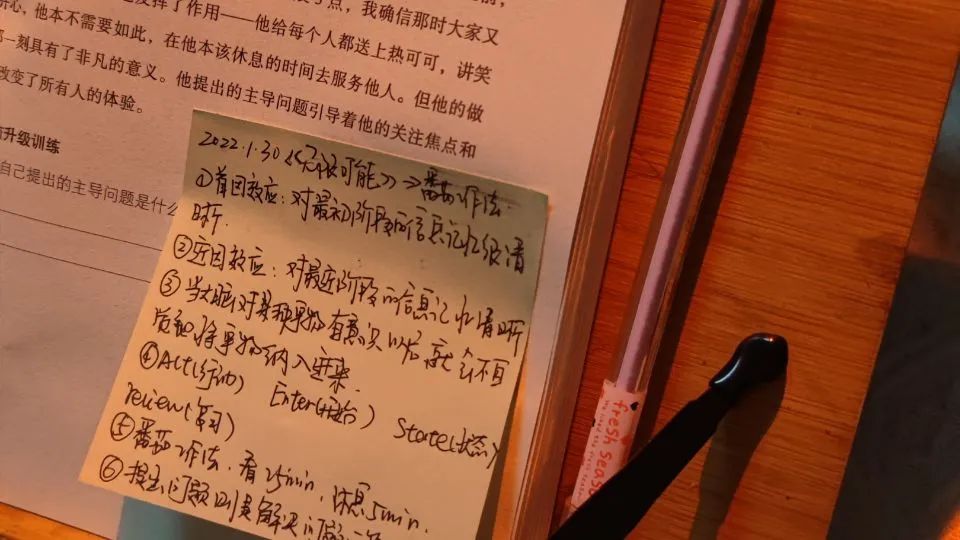 了点，我确信那时大家又
发挥了作用——他给每个人都送上热可可，讲笑
心，他本不需要如此，在他本该休息的时间去服务他人。但他的做
一刻具有了非凡的意义。他提出的主导问题引导着他的关注焦点和
改变了所有人的体验。
升级训练
自己提出的主导问题是什么
2022.1.30《无限可能》→番茄工作法
①首因效应：对最初阶段的信息记忆很清
晰.
②近因效应：对最近阶段的信息记忆清晰
③当大脑对某种事物有意识以后就会不自
将事物纳入进来.
④Act(行动) Enter(开始) State(状态)
review(复习)
⑤番茄工作法，看25min，休息5min.
⑥提出问题则是解决问题
fresh season